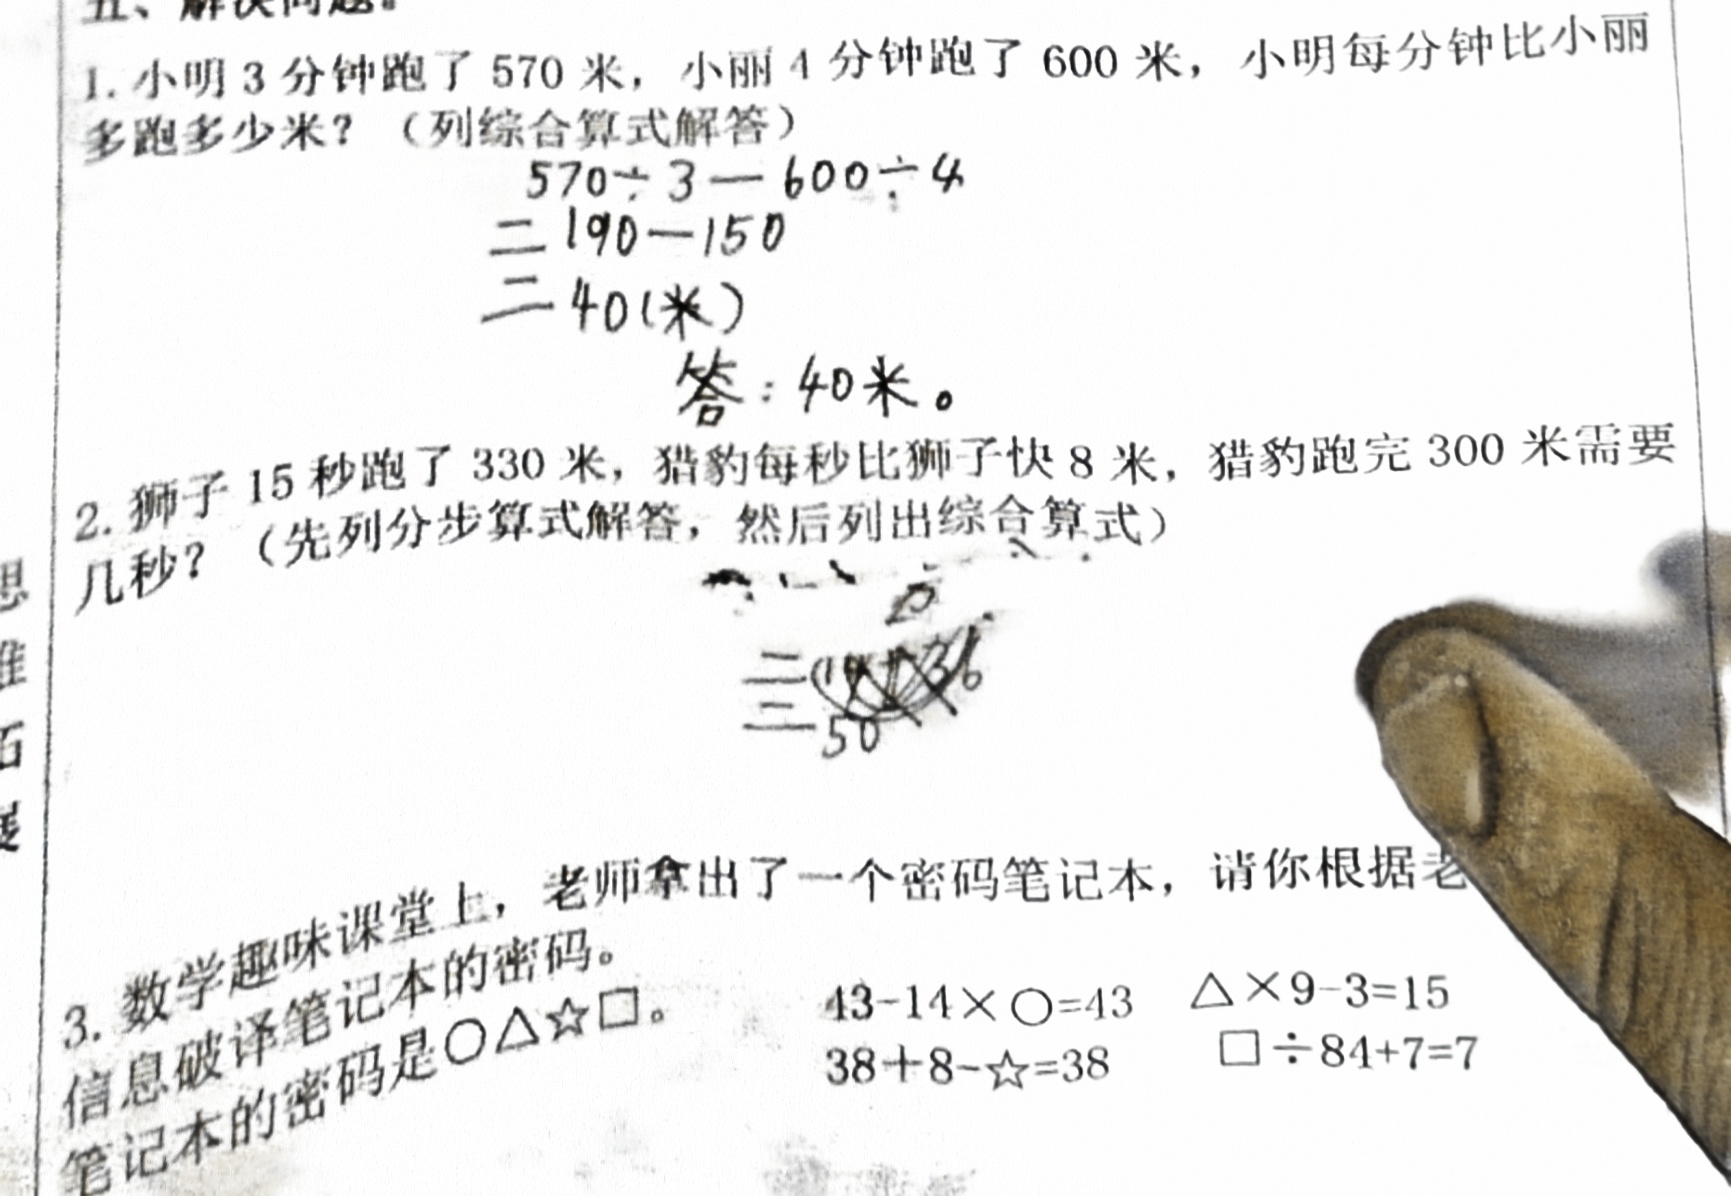 五、解决问题。
1. 小明 3 分钟跑了 570 米，小丽 4 分钟跑了 600 米，小明每分钟比小丽
多跑多少米？（列综合算式解答）
570÷3—600÷4
=190—150
=40(米)
答：40米。
2. 狮子 15 秒跑了 330 米，猎豹每秒比狮子快 8 米，猎豹跑完 300 米需要
几秒？（先列分步算式解答，然后列出综合算式）
=50
3. 数学趣味课堂上，老师拿出了一个密码笔记本，请你根据老
信息破译笔记本的密码。
笔记本的密码是○△☆□。
43-14×○=43 △×9-3=15
38+8-☆=38 □÷84+7=7
思
维
拓
展